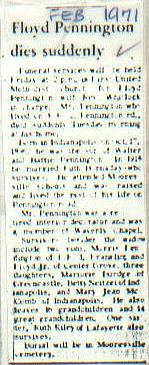 FEB 1971
Floyd Pennington
dies suddenly
Funeral services will be held
Friday at 2 p.m. at First United
Methodist church for Floyd
Pennington with Rev.
in charge. Mr. Pennington who
lived on Pennington rd.,
died suddenly Tuesday evening
at his home.
Born in Indianapolis
he was the son of Walter
and Hattie Pennington. In 1919
he married Ruth who
survives. He attended Moores-
ville schools and was raised
and lived the rest of his life on
Pennington road.
Mr. Pennington was a re-
tired interior decorator and was
a member of Waverly chapel.
Survivors besides the widow
include two sons, Morris Pen-
nington of Franklin, and
Floyd Jr. of Center Grove, three
daughters, Marjorie Burdge of
Greencastle, Betty Seitzel of Ind-
ianapolis, and Mary Jean Mc-
Comb of Indianapolis. He also
leaves 16 grandchildren and 14
great grandchildren. One sis-
ter, Ruth Kiley of Lafayette also
survives.
Burial will be in Mooresville
cemetery.